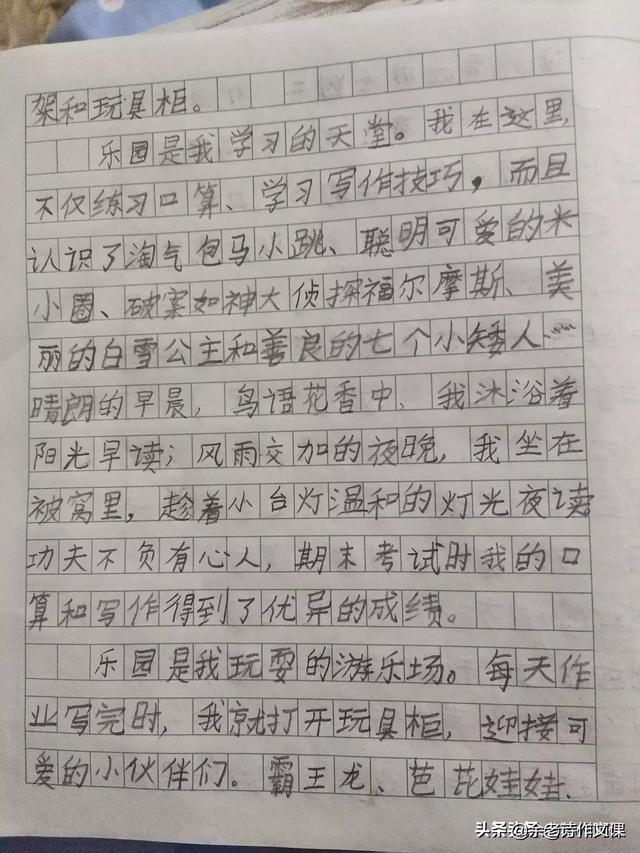 架和玩具柜。
乐园是我学习的天堂。我在这里,
不仅练习口算、学习写作技巧，而且
认识了淘气包马小跳、聪明可爱的米
小圈、破案如神大侦探福尔摩斯、美
丽的白雪公主和善良的七个小矮人……
晴朗的早晨，鸟语花香中、我沐浴着
阳光早读；风雨交加的夜晚，我坐在
被窝里，趁着小台灯温和的灯光夜读
功夫不负有心人，期末考试时我的口
算和写作得到了优异的成绩。
乐园是我玩耍的游乐场。每天作
业写完时，我就打开玩具柜，迎接可
爱的小伙伴们。霸王龙、芭芘娃娃、
头条 @余老诗作文课